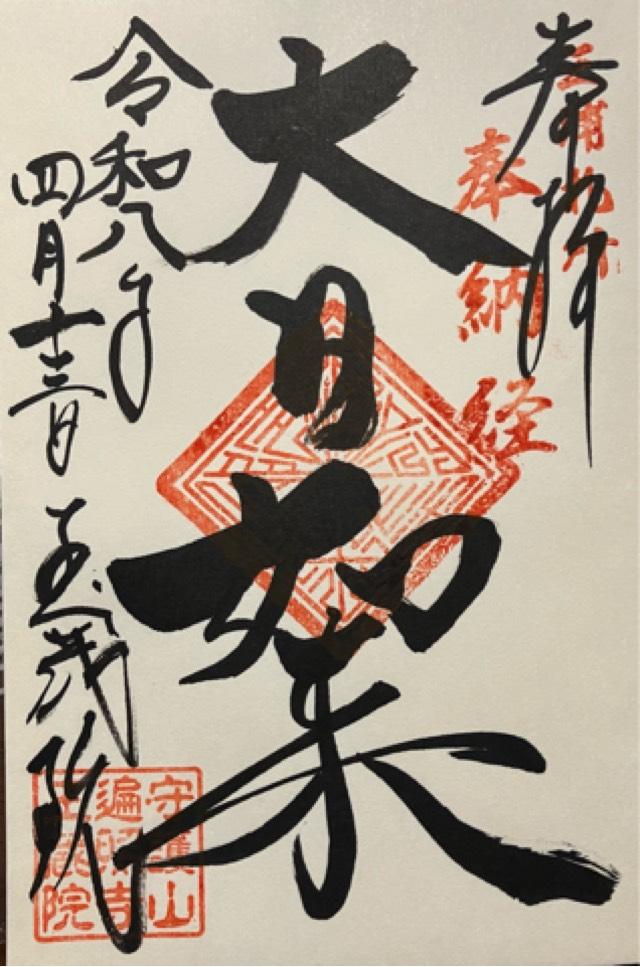 奉拝
奉納経
大日如来
令和八年
四月十三日
玉蔵院
守護山
遍照寺
玉蔵院